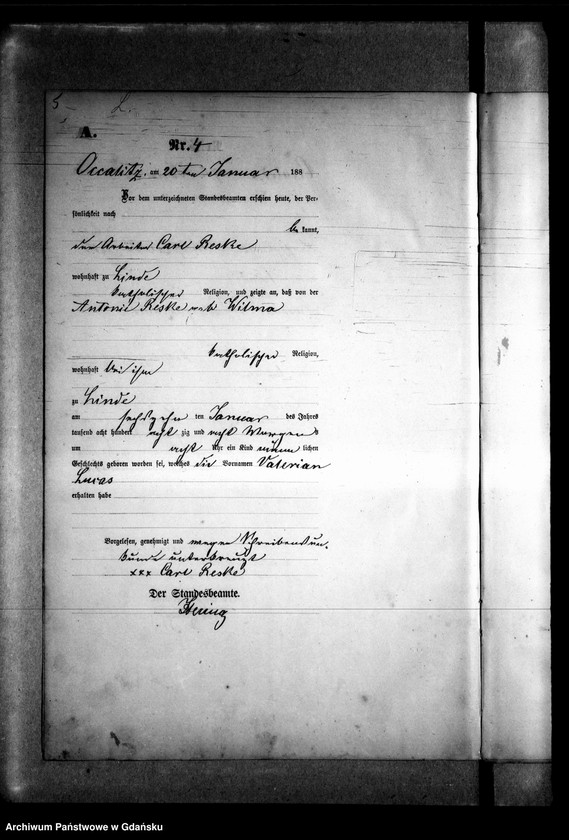 5 2.
A.
Nr. 4
Occalitz, am 20 ten Januar 188
Vor dem unterzeichneten Standesbeamten erschien heute, der Per-
sönlichkeit nach
be kannt,
der Arbeiter Carl Reske
wohnhaft zu Linde
katholischer Religion, und zeigte an, daß von der
Antonie Reske geb Wilma
katholischer Religion,
wohnhaft bei ihm
zu Linde
am sechszehn ten Januar des Jahres
tausend acht hundert acht zig und acht Morgens
um acht Uhr ein Kind männ lichen
Geschlechts geboren worden sei, welches die Vornamen Valerian
Lucas
erhalten habe
Vorgelesen, genehmigt und wegen Schreibensun-
kunde unterkreuzt
xxx Carl Reske
Der Standesbeamte.
Archiwum Państwowe w Gdańsku